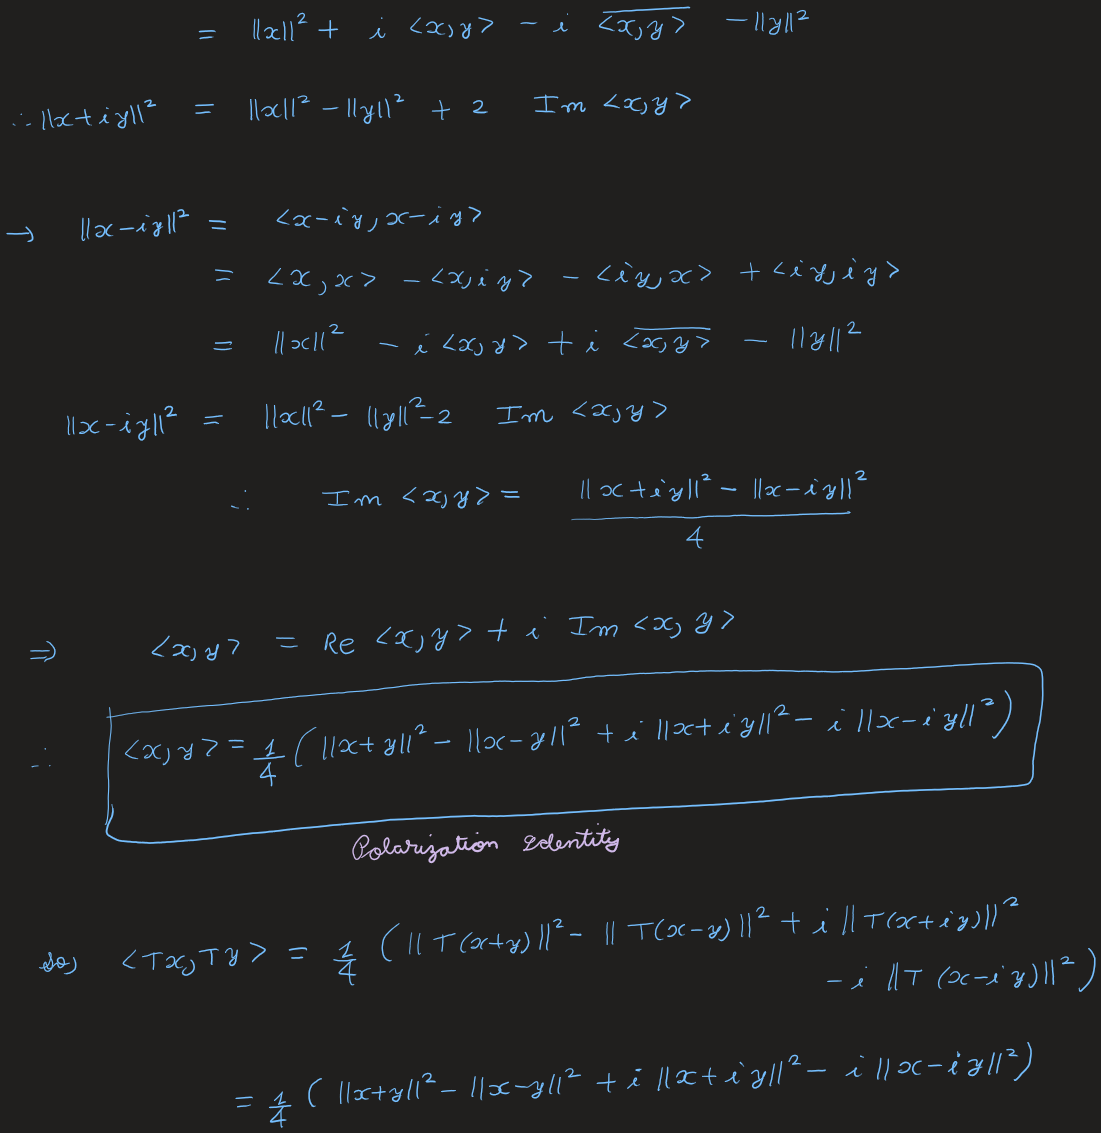 = ||x||² + i <x,y> − i \overline{<x,y>} − ||y||²
∴ ||x+iy||² = ||x||² − ||y||² + 2 Im <x,y>
→ ||x−iy||² = <x−iy, x−iy>
= <x,x> − <x,iy> − <iy,x> + <iy,iy>
= ||x||² − i <x,y> + i \overline{<x,y>} − ||y||²
||x−iy||² = ||x||² − ||y||² −2 Im <x,y>
∴ Im <x,y> = \frac{||x+iy||² − ||x−iy||²}{4}
⇒ <x,y> = Re <x,y> + i Im <x,y>
∴ <x,y> = \frac{1}{4} ( ||x+y||² − ||x−y||² + i ||x+iy||² − i ||x−iy||² )
Polarization Identity
so, <Tx,Ty> = \frac{1}{4} ( ||T(x+y)||² − ||T(x−y)||² + i ||T(x+iy)||²
− i ||T (x−iy)||² )
= \frac{1}{4} ( ||x+y||² − ||x−y||² + i ||x+iy||² − i ||x−iy||² )